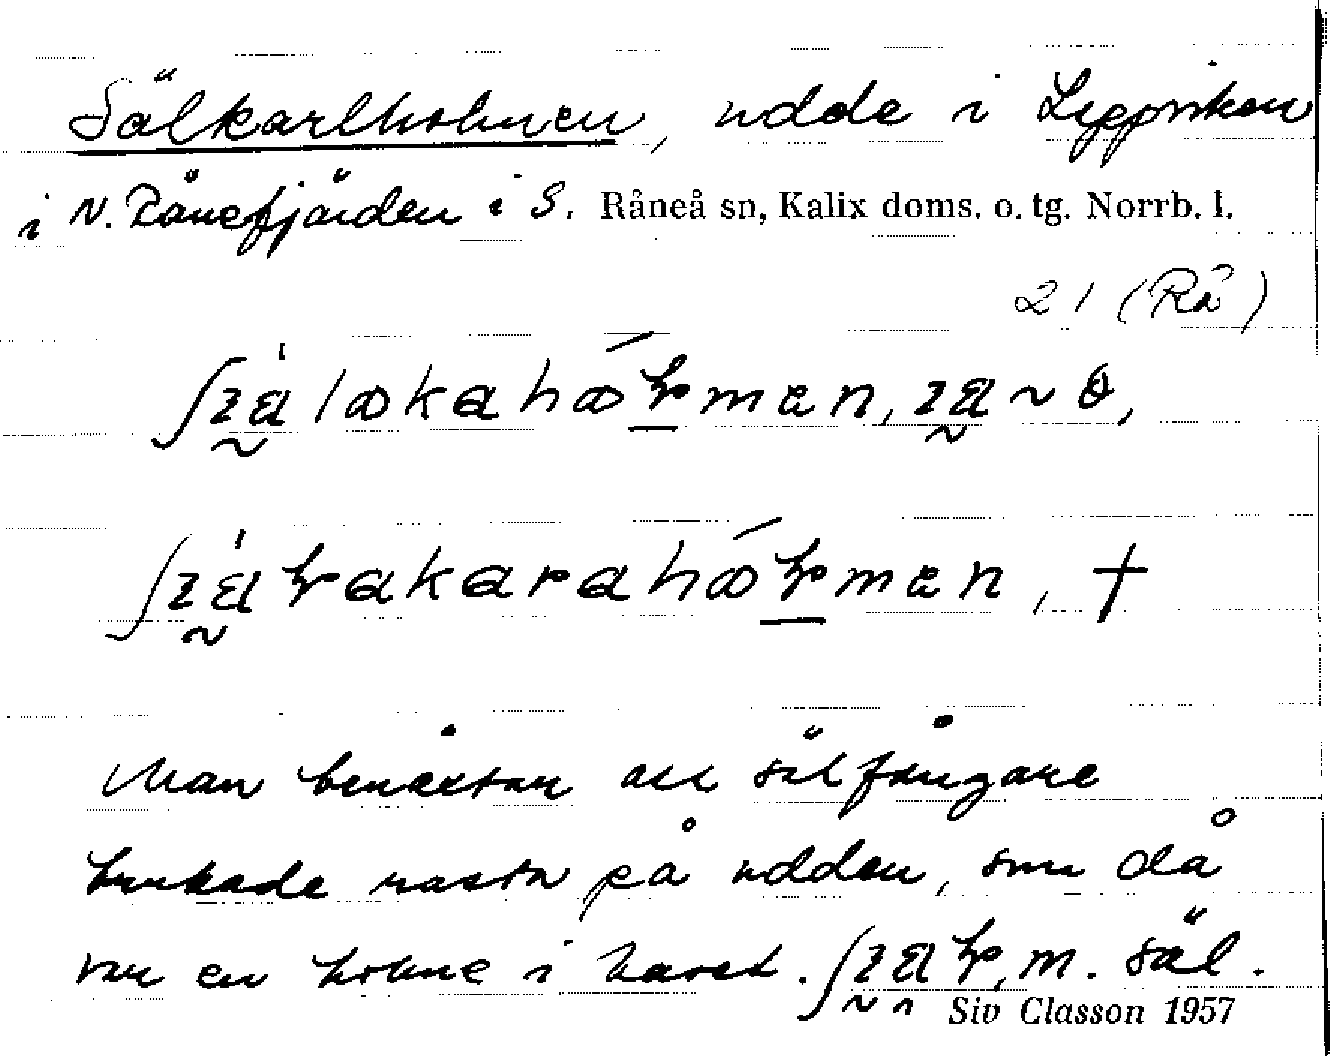 Sälkarlholmen, udde i Leppviken
i N. Rånefjärden i S. Råneå sn, Kalix doms. o. tg. Norrb. l.
21 (Rå)
Man berättar att sälfångare
brukade rasta på udden, som då
var en holme i havet. m. säl.
Siv Classon 1957